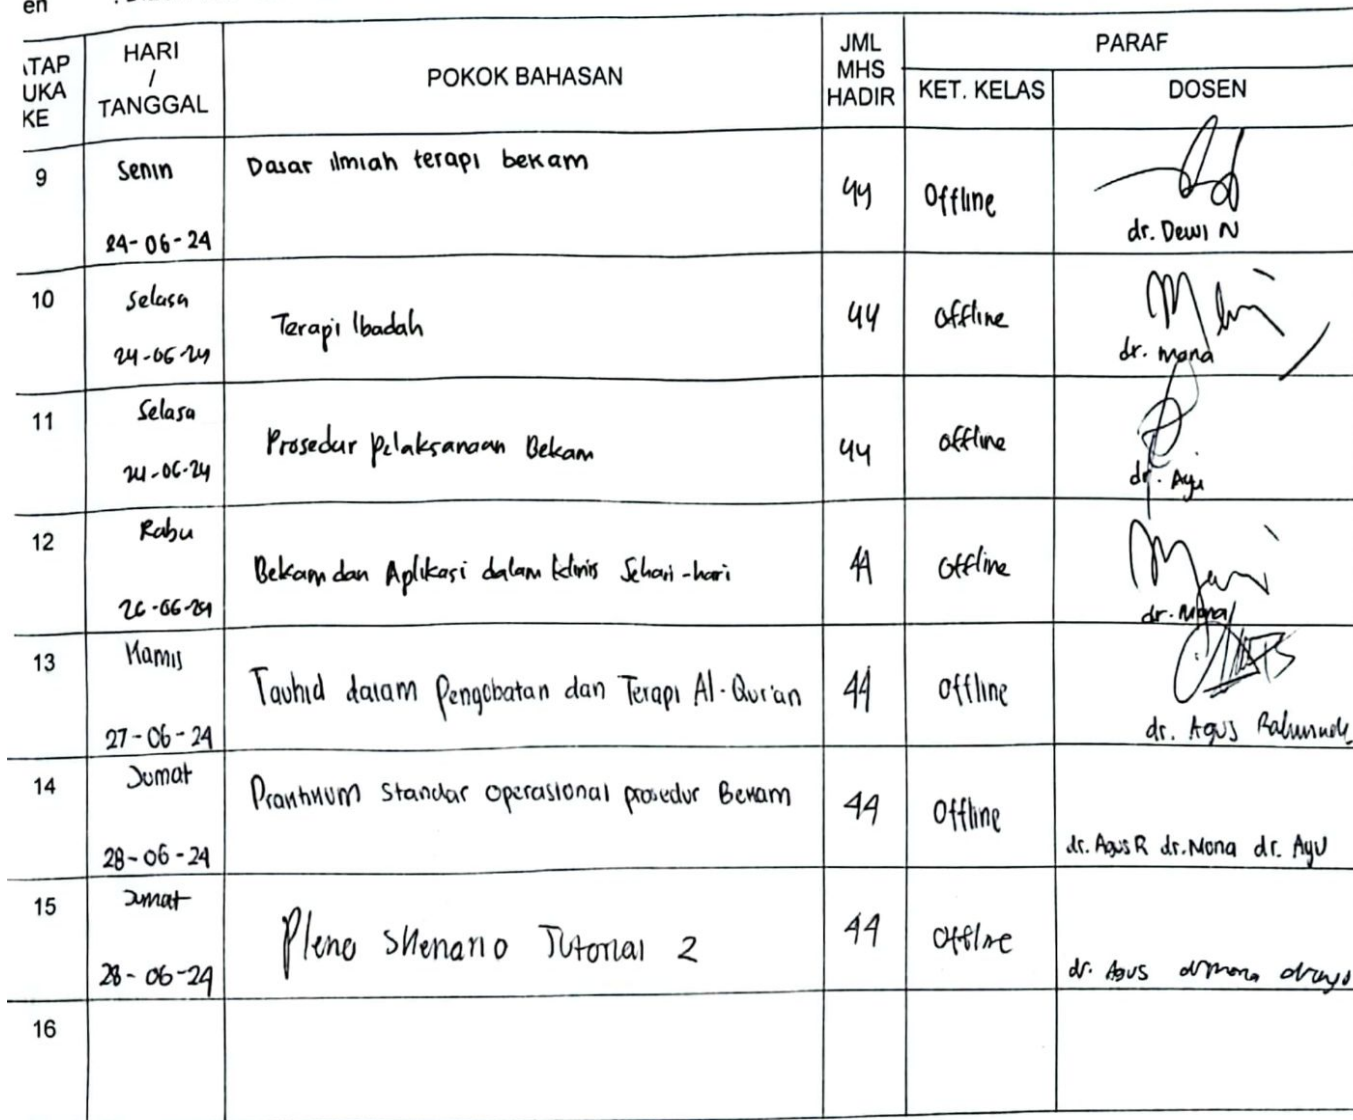 en
ATAP
UKA
KE
HARI
/
TANGGAL
POKOK BAHASAN
JML
MHS
HADIR
PARAF
KET. KELAS
DOSEN
9
Senin
24-06-24
Dasar ilmiah terapi bekam
44
Offline
dr. Dewi N
10
Selasa
24-06-24
Terapi Ibadah
44
Offline
dr. Mona
11
Selasa
24-06-24
Prosedur Pelaksanaan Bekam
44
offline
dr. Ayu
12
Rabu
26-06-24
Bekam dan Aplikasi dalam klinis Sehari-hari
44
Offline
dr. Mona
13
Kamis
27-06-24
Tauhid dalam Pengobatan dan Terapi Al-Qur'an
44
Offline
dr. Agus
14
Jumat
28-06-24
Praktikum Standar operasional prosedur Bekam
44
Offline
dr. Agus R dr. Mona dr. Ayu
15
Jumat
28-06-24
Pleno Skenario Tutorial 2
44
Offline
dr. Agus dr mona dr ayu
16